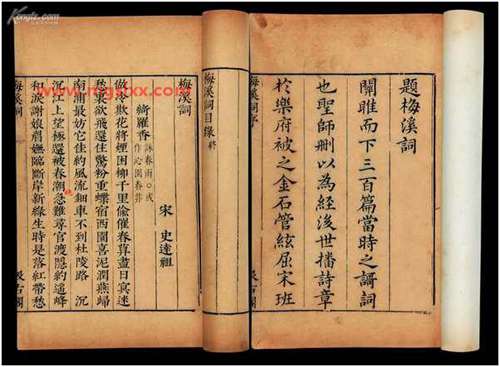 题梅溪詞
關雎而下三百篇當時之謌詞
也聖師刪以為經後世播詩章
於樂府被之金石管絃屈宋班
梅溪詞序
汲古閣
梅溪詞目錄 終
梅溪詞
宋 史達祖
綺羅香
做冷欺花將煙困柳千里偷催春暮盡日冥迷
愁裏欲飛還住驚粉重蝶宿西園喜泥潤燕歸
南浦最妨它佳約風流鈿車不到杜陵路 沉
沉江上望極還被春潮急難尋官渡隱約遙峰
和淚謝娘眉嫵臨斷岸新綠生時是落紅帶愁
梅溪詞
汲古閣